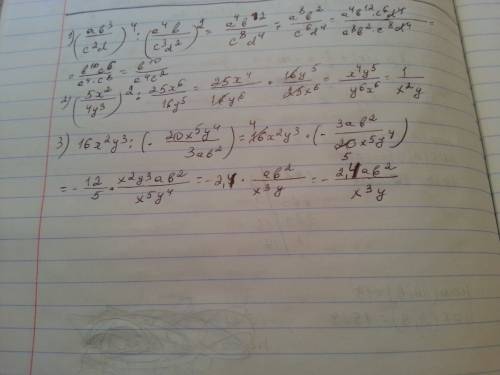 1) (ab³/c²d)⁴ : (a⁴b/c³d²)² = a⁴b¹²/c⁸d⁴ : a⁸b²/c⁶d⁴ = a⁴b¹²·c⁶d⁴/a⁸b²·c⁸d⁴ =
= b¹⁰c⁶/a⁴·c⁸ = b¹⁰/a⁴c²
2) (5x²/4y³)² : 25x⁶/16y⁵ = 25x⁴/16y⁶ · 16y⁵/25x⁶ = x⁴y⁵/y⁶x⁶ = 1/x²y
3) 16x²y³ : (- 20x⁵y⁴/3ab²) = 4 16x²y³ · (- 3ab²/20x⁵y⁴) 5
= - 12/5 · x²y³ab²/x⁵y⁴ = -2,4 · ab²/x³y = - 2,4ab²/x³y